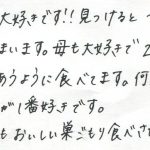 大好きです!! 見つけると
まいます。母も大好きで2
あうように食べてます。何
が1番好きです。
もおいしい巣ごもり食べさせ